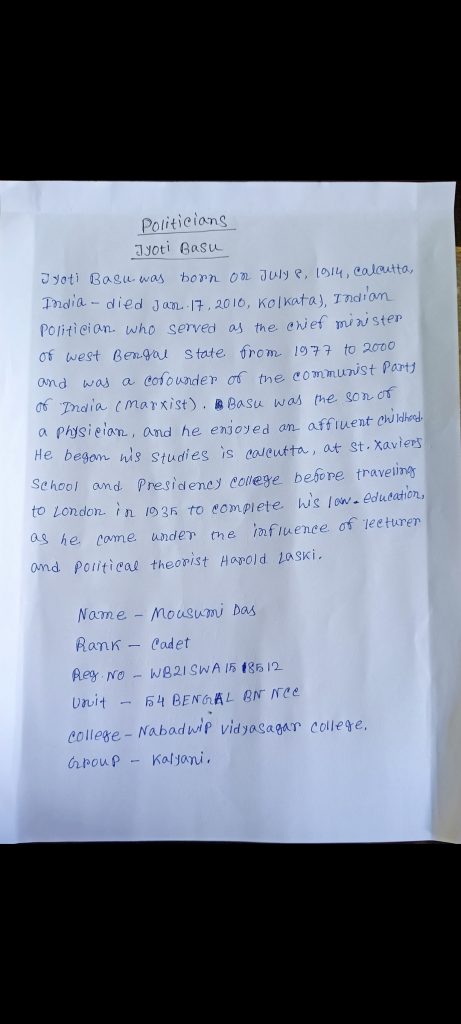 Politicians
Jyoti Basu
Jyoti Basu was born on July 8, 1914, Calcutta,
India - died Jan. 17, 2010, Kolkata), Indian
Politician who served as the chief minister
of west Bengal state from 1977 to 2000
and was a cofounder of the communist Party
of India (Marxist). Basu was the son of
a physician, and he enjoyed an affluent childhood.
He began his studies is calcutta, at St. Xaviers
School and Presidency college before traveling
to London in 1935 to complete his law-education,
as he came under the influence of lecturer
and Political theorist Harold Laski.
Name - Mousumi Das
Rank - Cadet
Reg. No - WB21SWA1518512
Unit - 54 BENGAL BN NCC
college - Nabadwip vidyasagar college.
Group - Kalyani.